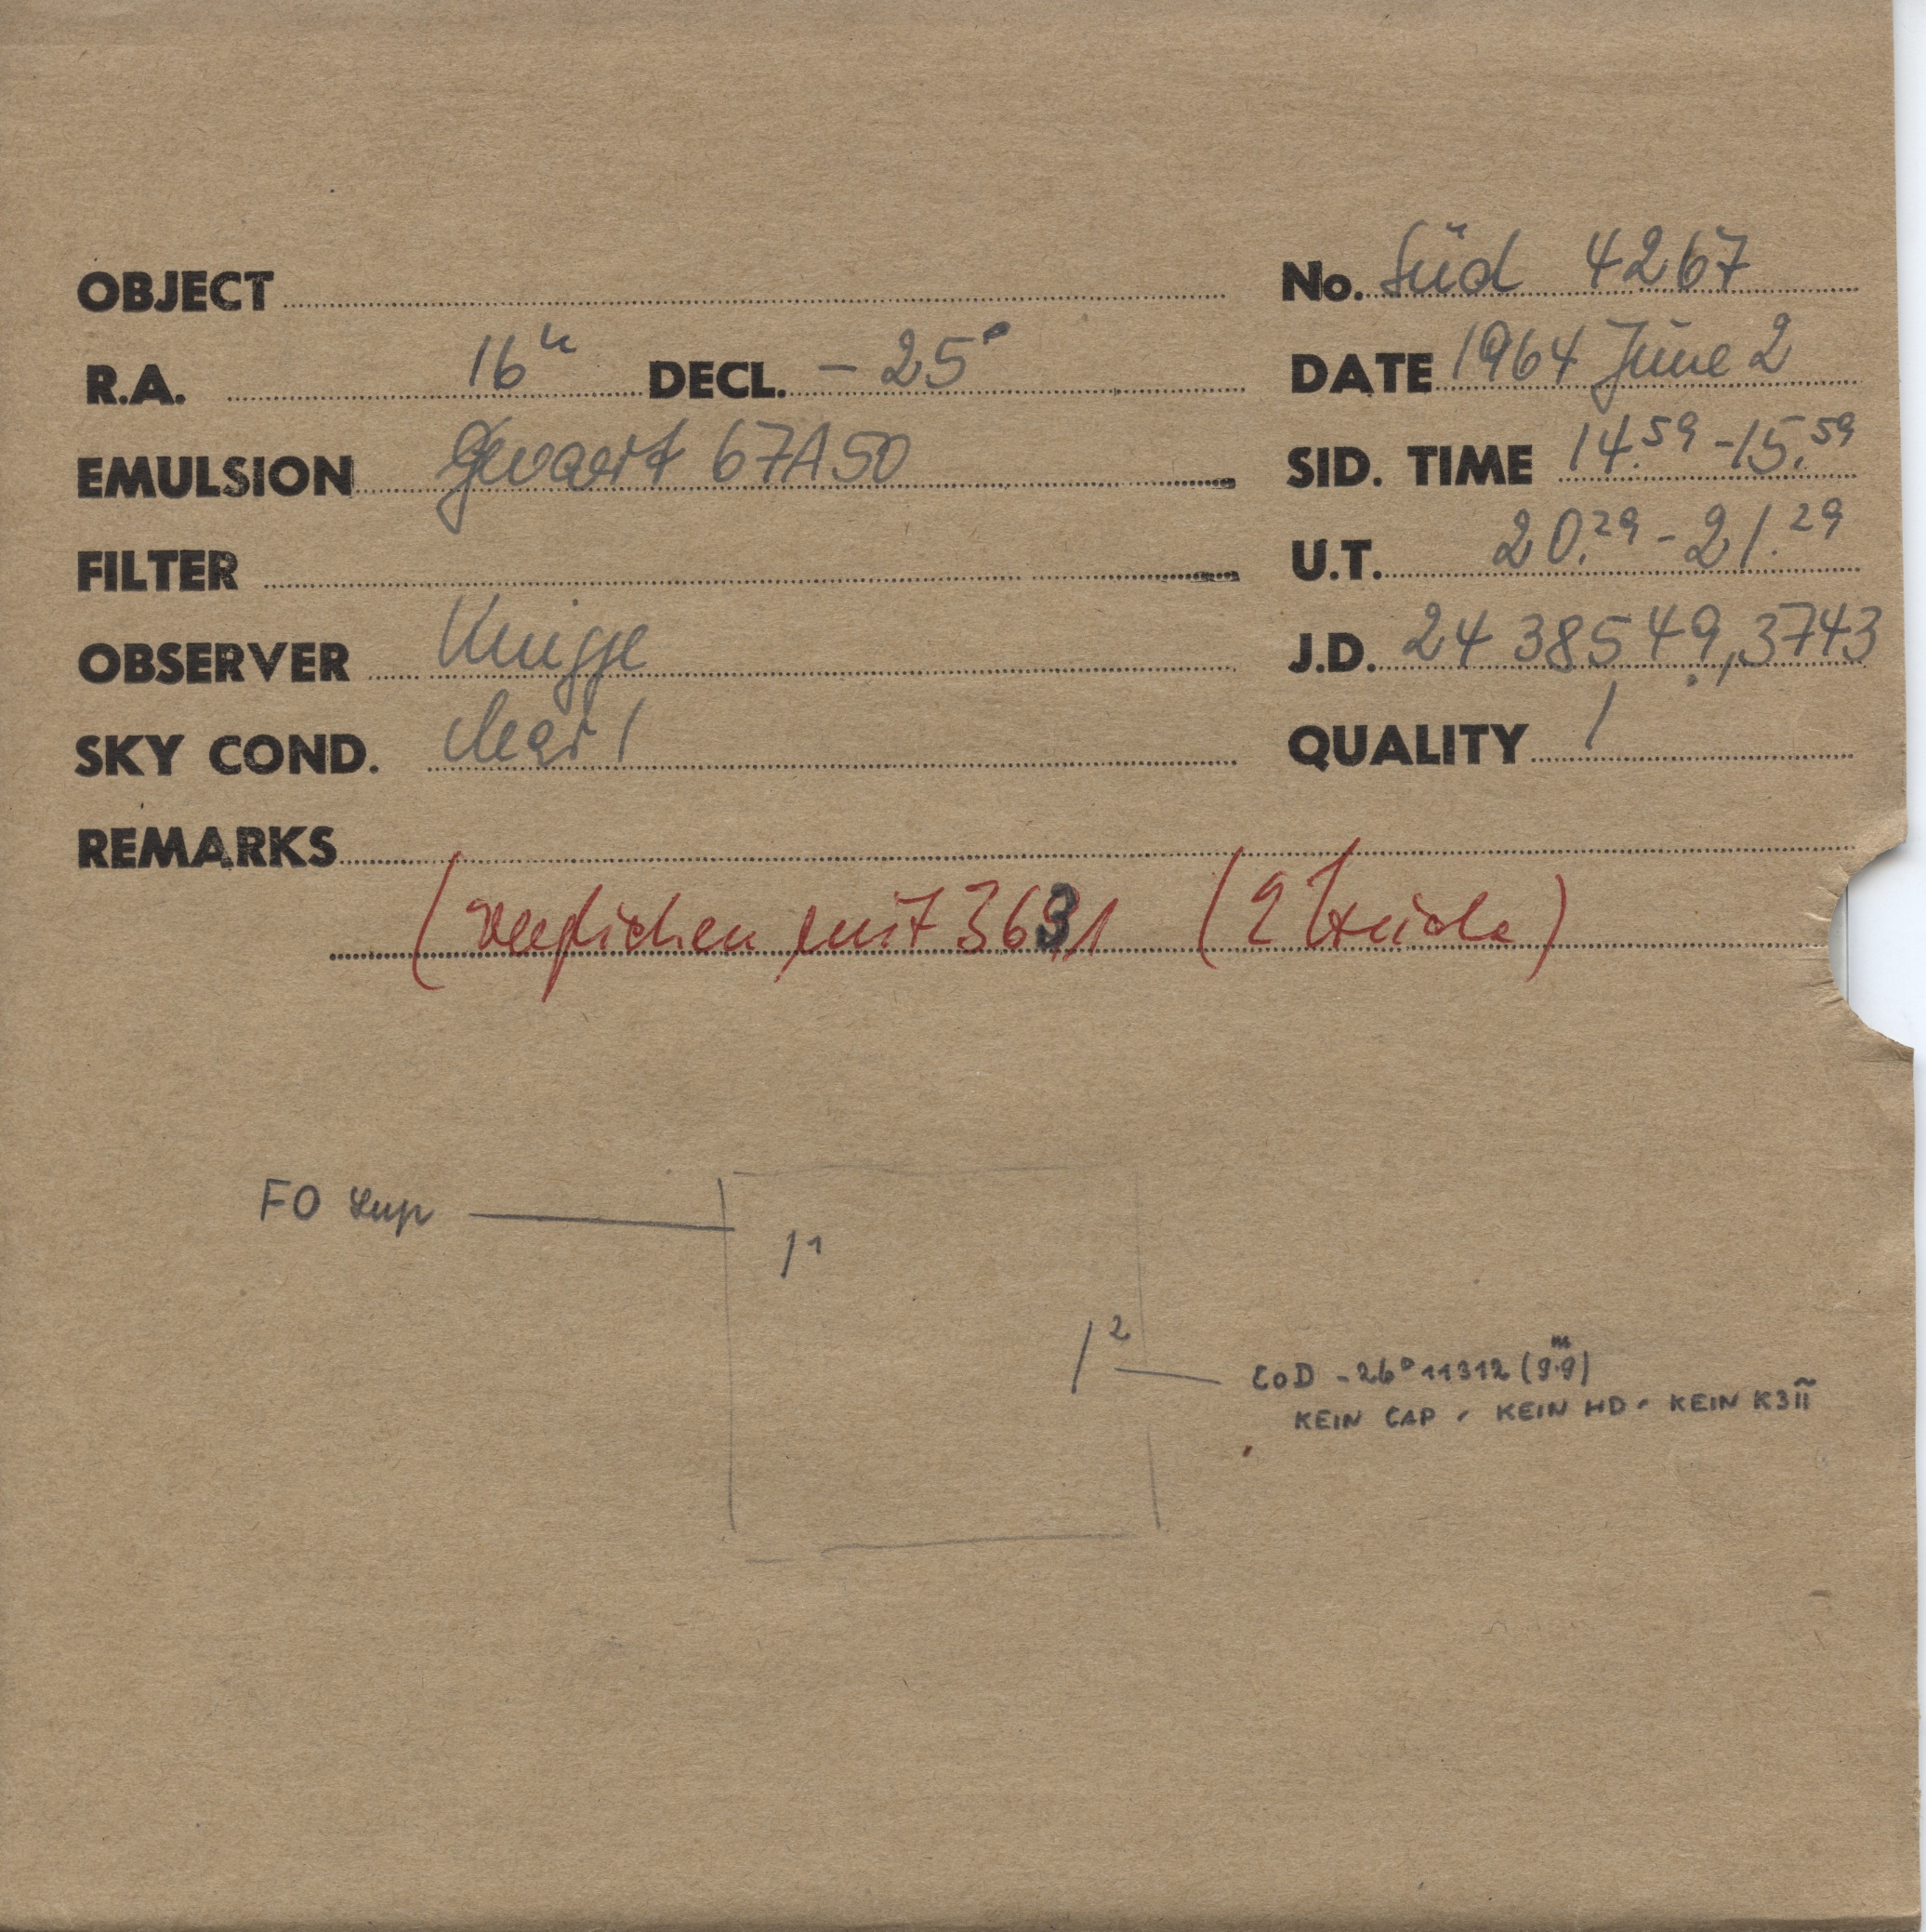 OBJECT No. Süd 4267
R.A. 16h DECL. -25° DATE 1964 June 2
EMULSION Gevaert 67A50 SID. TIME 14.59 - 15.59
FILTER U.T. 20.29 - 21.29
OBSERVER Knigge J.D. 24 38549,3743
SKY COND. clear 1 QUALITY 1
REMARKS
(verglichen mit 3631 (2 Striche)
FO Lup
1
2
CoD -26° 11312 (9.9m)
KEIN CAP, KEIN HD, KEIN K3Π